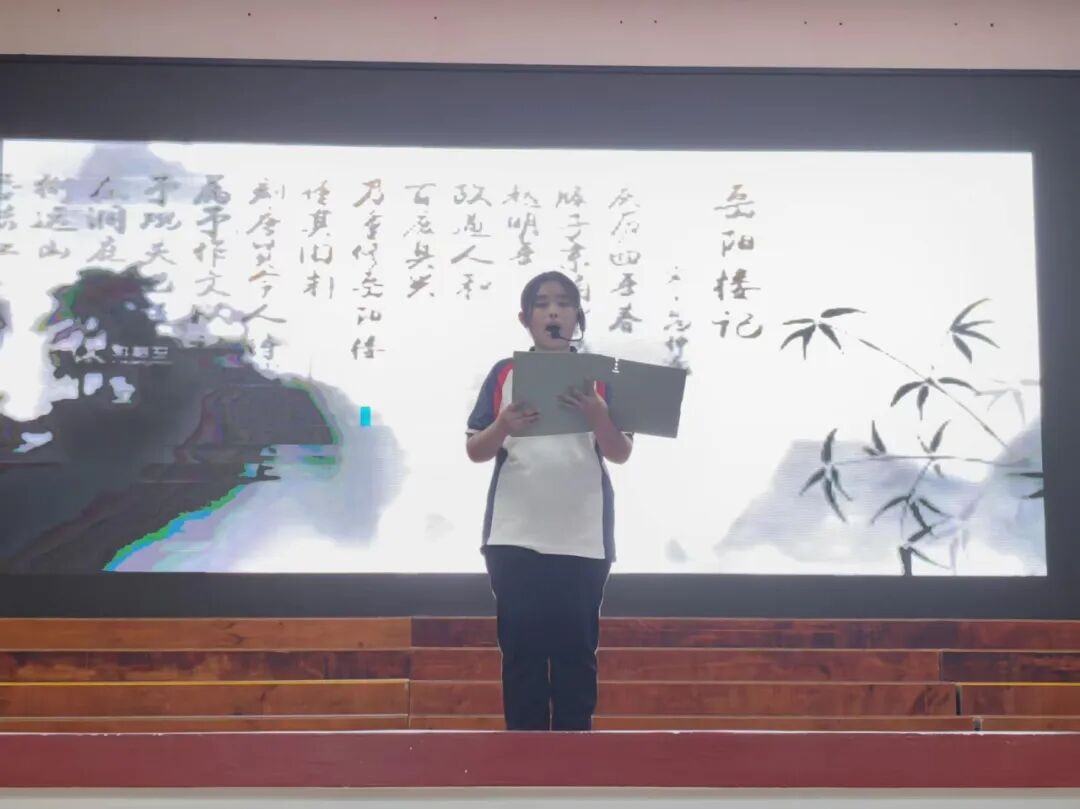 岳阳楼记
庆历四年春
滕子京
越明年
政通人和
百废具兴
乃重修岳阳楼
增其旧制
刻唐贤今人诗
属予作文以
予观夫巴
在洞庭
衔远山
吞长江